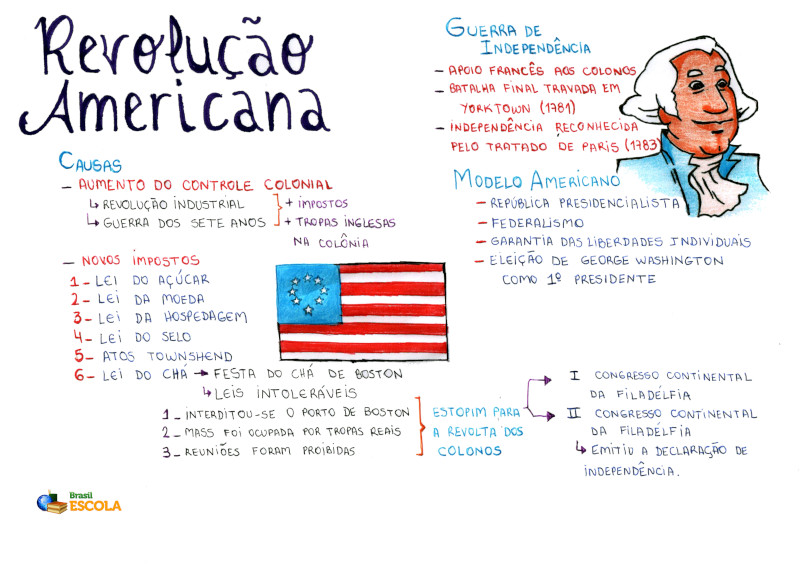 Revolução
Americana
CAUSAS
– AUMENTO DO CONTROLE COLONIAL
↳ REVOLUÇÃO INDUSTRIAL
↳ GUERRA DOS SETE ANOS
+ IMPOSTOS
+ TROPAS INGLESAS
NA COLÔNIA
– NOVOS IMPOSTOS
1 – LEI DO AÇÚCAR
2 – LEI DA MOEDA
3 – LEI DA HOSPEDAGEM
4 – LEI DO SELO
5 – ATOS TOWNSHEND
6 – LEI DO CHÁ → FESTA DO CHÁ DE BOSTON
↳ LEIS INTOLERÁVEIS
1 – INTERDITOU-SE O PORTO DE BOSTON
2 – MASS FOI OCUPADA POR TROPAS REAIS
3 – REUNIÕES FORAM PROIBIDAS
ESTOPIM PARA
A REVOLTA DOS
COLONOS
I CONGRESSO CONTINENTAL
DA FILADÉLFIA
II CONGRESSO CONTINENTAL
DA FILADÉLFIA
↳ EMITIU A DECLARAÇÃO DE
INDEPENDÊNCIA.
GUERRA DE
INDEPENDÊNCIA
– APOIO FRANCÊS AOS COLONOS
– BATALHA FINAL TRAVADA EM
YORKTOWN (1781)
– INDEPENDÊNCIA RECONHECIDA
PELO TRATADO DE PARIS (1783)
MODELO AMERICANO
– REPÚBLICA PRESIDENCIALISTA
– FEDERALISMO
– GARANTIA DAS LIBERDADES INDIVIDUAIS
– ELEIÇÃO DE GEORGE WASHINGTON
COMO 1º PRESIDENTE
Brasil
ESCOLA